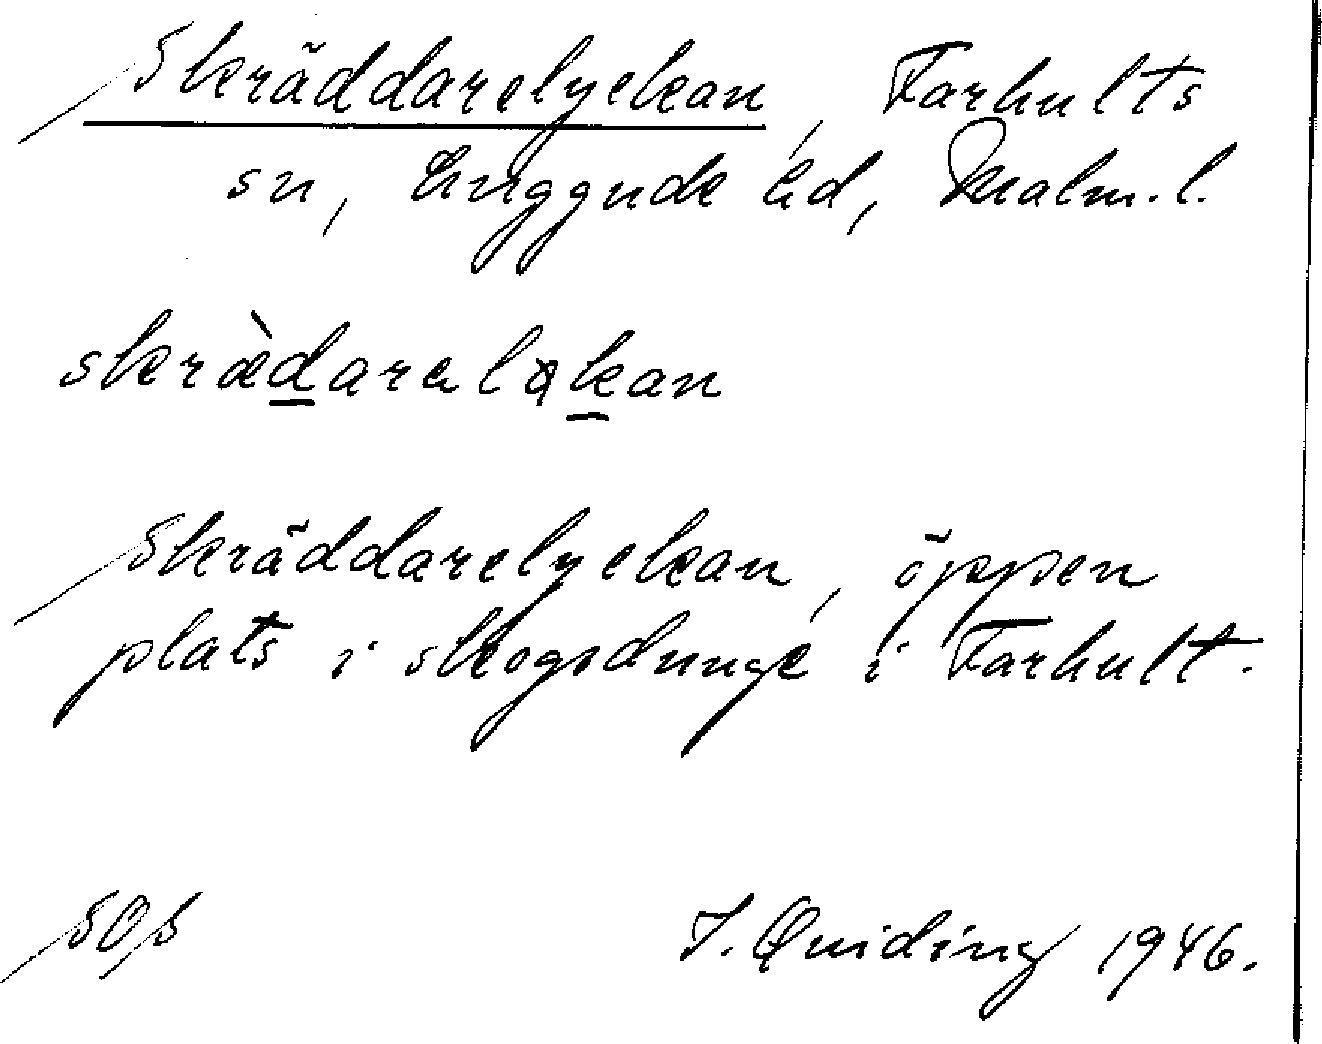 Skräddarelyckan, Farhults
sn, Luggude hd, Malm. l.
skræ̀darαløkan
Skräddarelyckan, öppen
plats i skogsdunge i Farhult.
SOS
I. Quiding 1946.